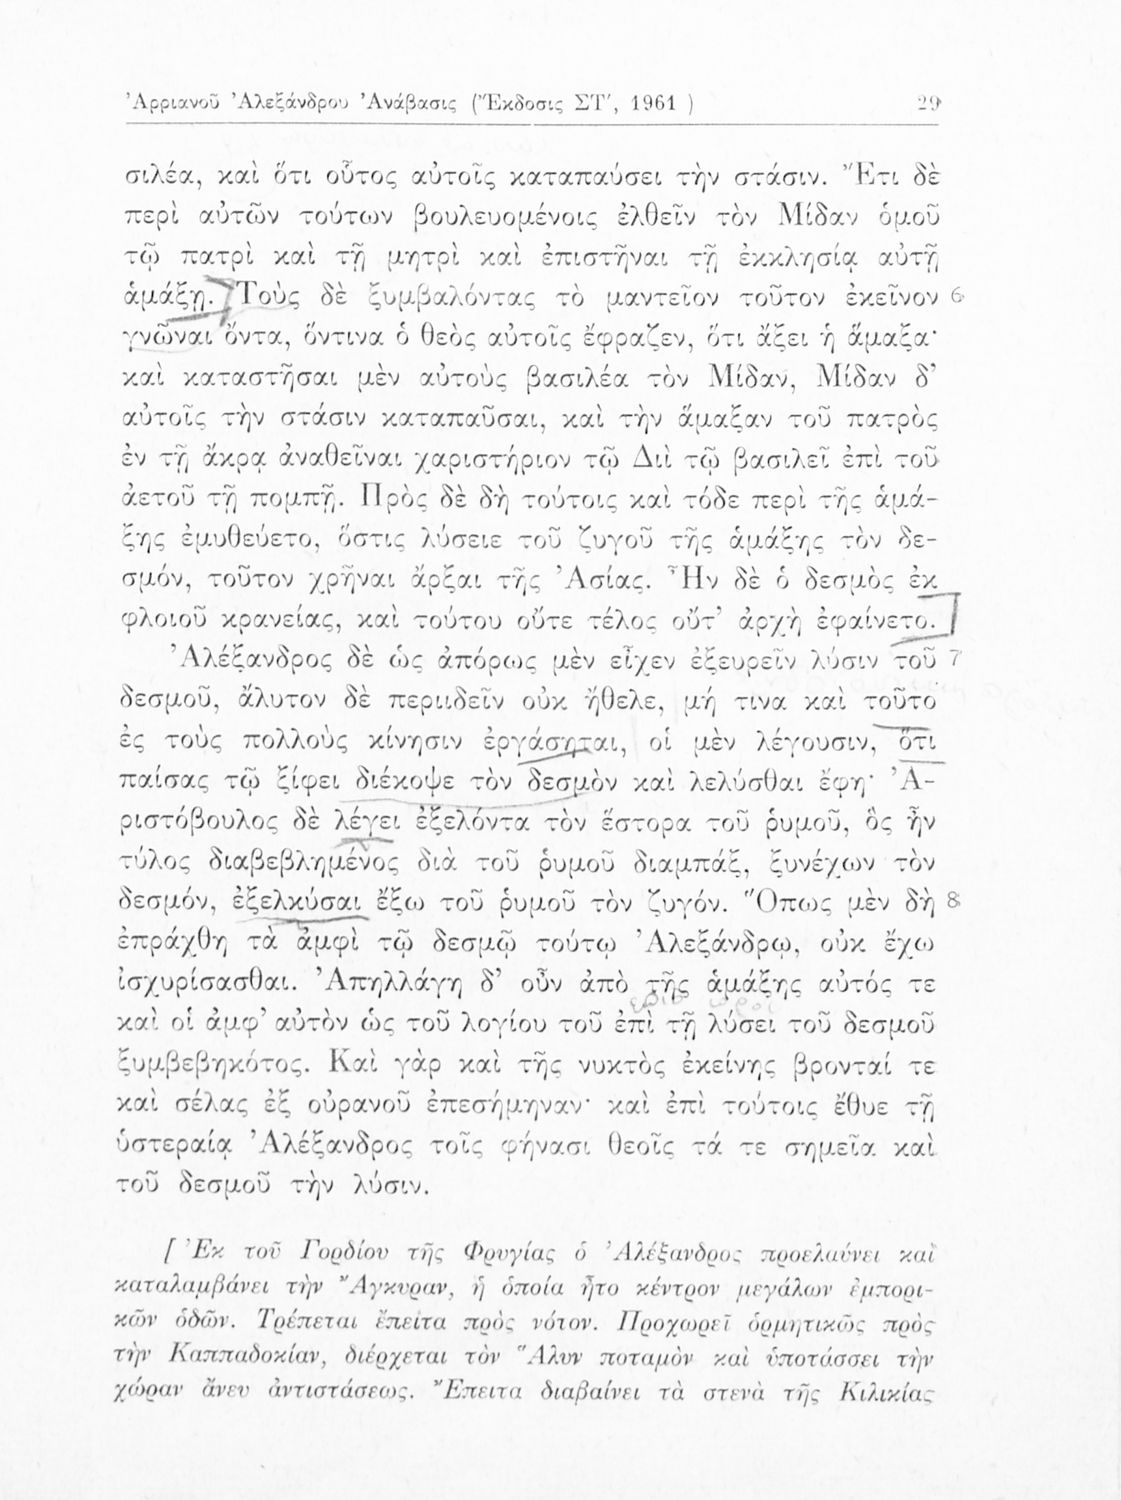 Ἀρριανοῦ Ἀλεξάνδρου Ἀνάβασις (Ἔκδοσις ΣΤ′, 1961 ) 29
σιλέα, καὶ ὅτι οὗτος αὐτοῖς καταπαύσει τὴν στάσιν. Ἔτι δὲ
περὶ αὐτῶν τούτων βουλευομένοις ἐλθεῖν τὸν Μίδαν ὁμοῦ
τῷ πατρὶ καὶ τῇ μητρὶ καὶ ἐπιστῆναι τῇ ἐκκλησίᾳ αὐτῇ
ἁμάξῃ. Τοὺς δὲ ξυμβαλόντας τὸ μαντεῖον τοῦτον ἐκεῖνον 6
γνῶναι ὄντα, ὅντινα ὁ θεὸς αὐτοῖς ἔφραζεν, ὅτι ἄξει ἡ ἅμαξα·
καὶ καταστῆσαι μὲν αὐτοὺς βασιλέα τὸν Μίδαν, Μίδαν δ’
αὐτοῖς τὴν στάσιν καταπαῦσαι, καὶ τὴν ἅμαξαν τοῦ πατρὸς
ἐν τῇ ἄκρᾳ ἀναθεῖναι χαριστήριον τῷ Διὶ τῷ βασιλεῖ ἐπὶ τοῦ
ἀετοῦ τῇ πομπῇ. Πρὸς δὲ δὴ τούτοις καὶ τόδε περὶ τῆς ἁμά-
ξης ἐμυθεύετο, ὅστις λύσειε τοῦ ζυγοῦ τῆς ἁμάξης τὸν δε-
σμόν, τοῦτον χρῆναι ἄρξαι τῆς Ἀσίας. Ἦν δὲ ὁ δεσμὸς ἐκ
φλοιοῦ κρανείας, καὶ τούτου οὔτε τέλος οὔτ’ ἀρχὴ ἐφαίνετο.
Ἀλέξανδρος δὲ ὡς ἀπόρως μὲν εἶχεν ἐξευρεῖν λύσιν τοῦ 7
δεσμοῦ, ἄλυτον δὲ περιιδεῖν οὐκ ἤθελε, μή τινα καὶ τοῦτο
ἐς τοὺς πολλοὺς κίνησιν ἐργάσηται, οἱ μὲν λέγουσιν, ὅτι
παίσας τῷ ξίφει διέκοψε τὸν δεσμὸν καὶ λελύσθαι ἔφη· Ἀ-
ριστόβουλος δὲ λέγει ἐξελόντα τὸν ἕστορα τοῦ ῥυμοῦ, ὃς ἦν
τύλος διαβεβλημένος διὰ τοῦ ῥυμοῦ διαμπάξ, ξυνέχων τὸν
δεσμόν, ἐξελκύσαι ἔξω τοῦ ῥυμοῦ τὸν ζυγόν. Ὅπως μὲν δὴ 8
ἐπράχθη τὰ ἀμφὶ τῷ δεσμῷ τούτῳ Ἀλεξάνδρῳ, οὐκ ἔχω
ἰσχυρίσασθαι. Ἀπηλλάγη δ’ οὖν ἀπὸ τῆς ἁμάξης αὐτός τε
καὶ οἱ ἀμφ’ αὐτὸν ὡς τοῦ λογίου τοῦ ἐπὶ τῇ λύσει τοῦ δεσμοῦ
ξυμβεβηκότος. Καὶ γὰρ καὶ τῆς νυκτὸς ἐκείνης βρονταί τε
καὶ σέλας ἐξ οὐρανοῦ ἐπεσήμηναν· καὶ ἐπὶ τούτοις ἔθυε τῇ
ὑστεραίᾳ Ἀλέξανδρος τοῖς φήνασι θεοῖς τά τε σημεῖα καὶ
τοῦ δεσμοῦ τὴν λύσιν.
[ Ἐκ τοῦ Γορδίου τῆς Φρυγίας ὁ Ἀλέξανδρος προελαύνει καὶ
καταλαμβάνει τὴν Ἄγκυραν, ἡ ὁποία ἦτο κέντρον μεγάλων ἐμπορι-
κῶν ὁδῶν. Τρέπεται ἔπειτα πρὸς νότον. Προχωρεῖ ὁρμητικῶς πρὸς
τὴν Καππαδοκίαν, διέρχεται τὸν Ἅλυν ποταμὸν καὶ ὑποτάσσει τὴν
χώραν ἄνευ ἀντιστάσεως. Ἔπειτα διαβαίνει τὰ στενὰ τῆς Κιλικίας